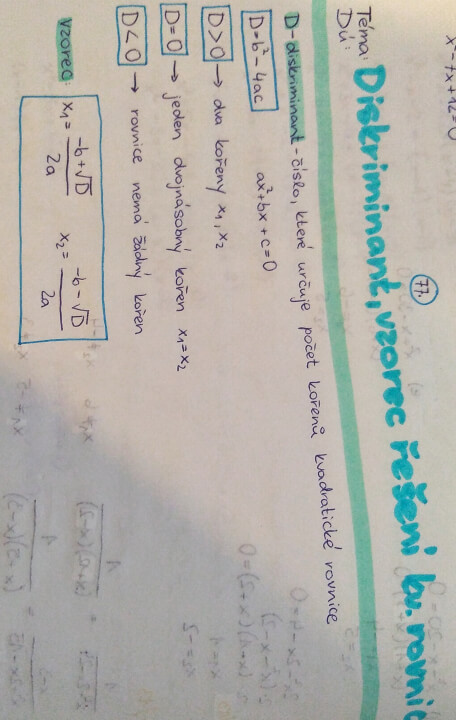 x²-7x+12=0
77.
Téma: Diskriminant, vzorec řešení kv. rovnic
DÚ:
D - diskriminant - číslo, které určuje počet kořenů kvadratické rovnice
D=b²-4ac ax²+bx+c=0
D>0 → dva kořeny x₁, x₂
D=0 → jeden dvojnásobný kořen x₁=x₂
D<0 → rovnice nemá žádný kořen
vzorec:
x₁ = -b+√D / 2a x₂ = -b-√D / 2a